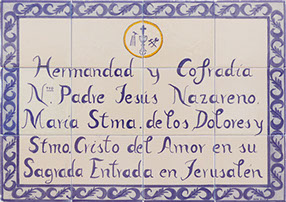 Hermandad y Cofradía
Ntro. Padre Jesús Nazareno.
María Stma. de los Dolores y
Stmo. Cristo del Amor en su
Sagrada Entrada en Jerusalen